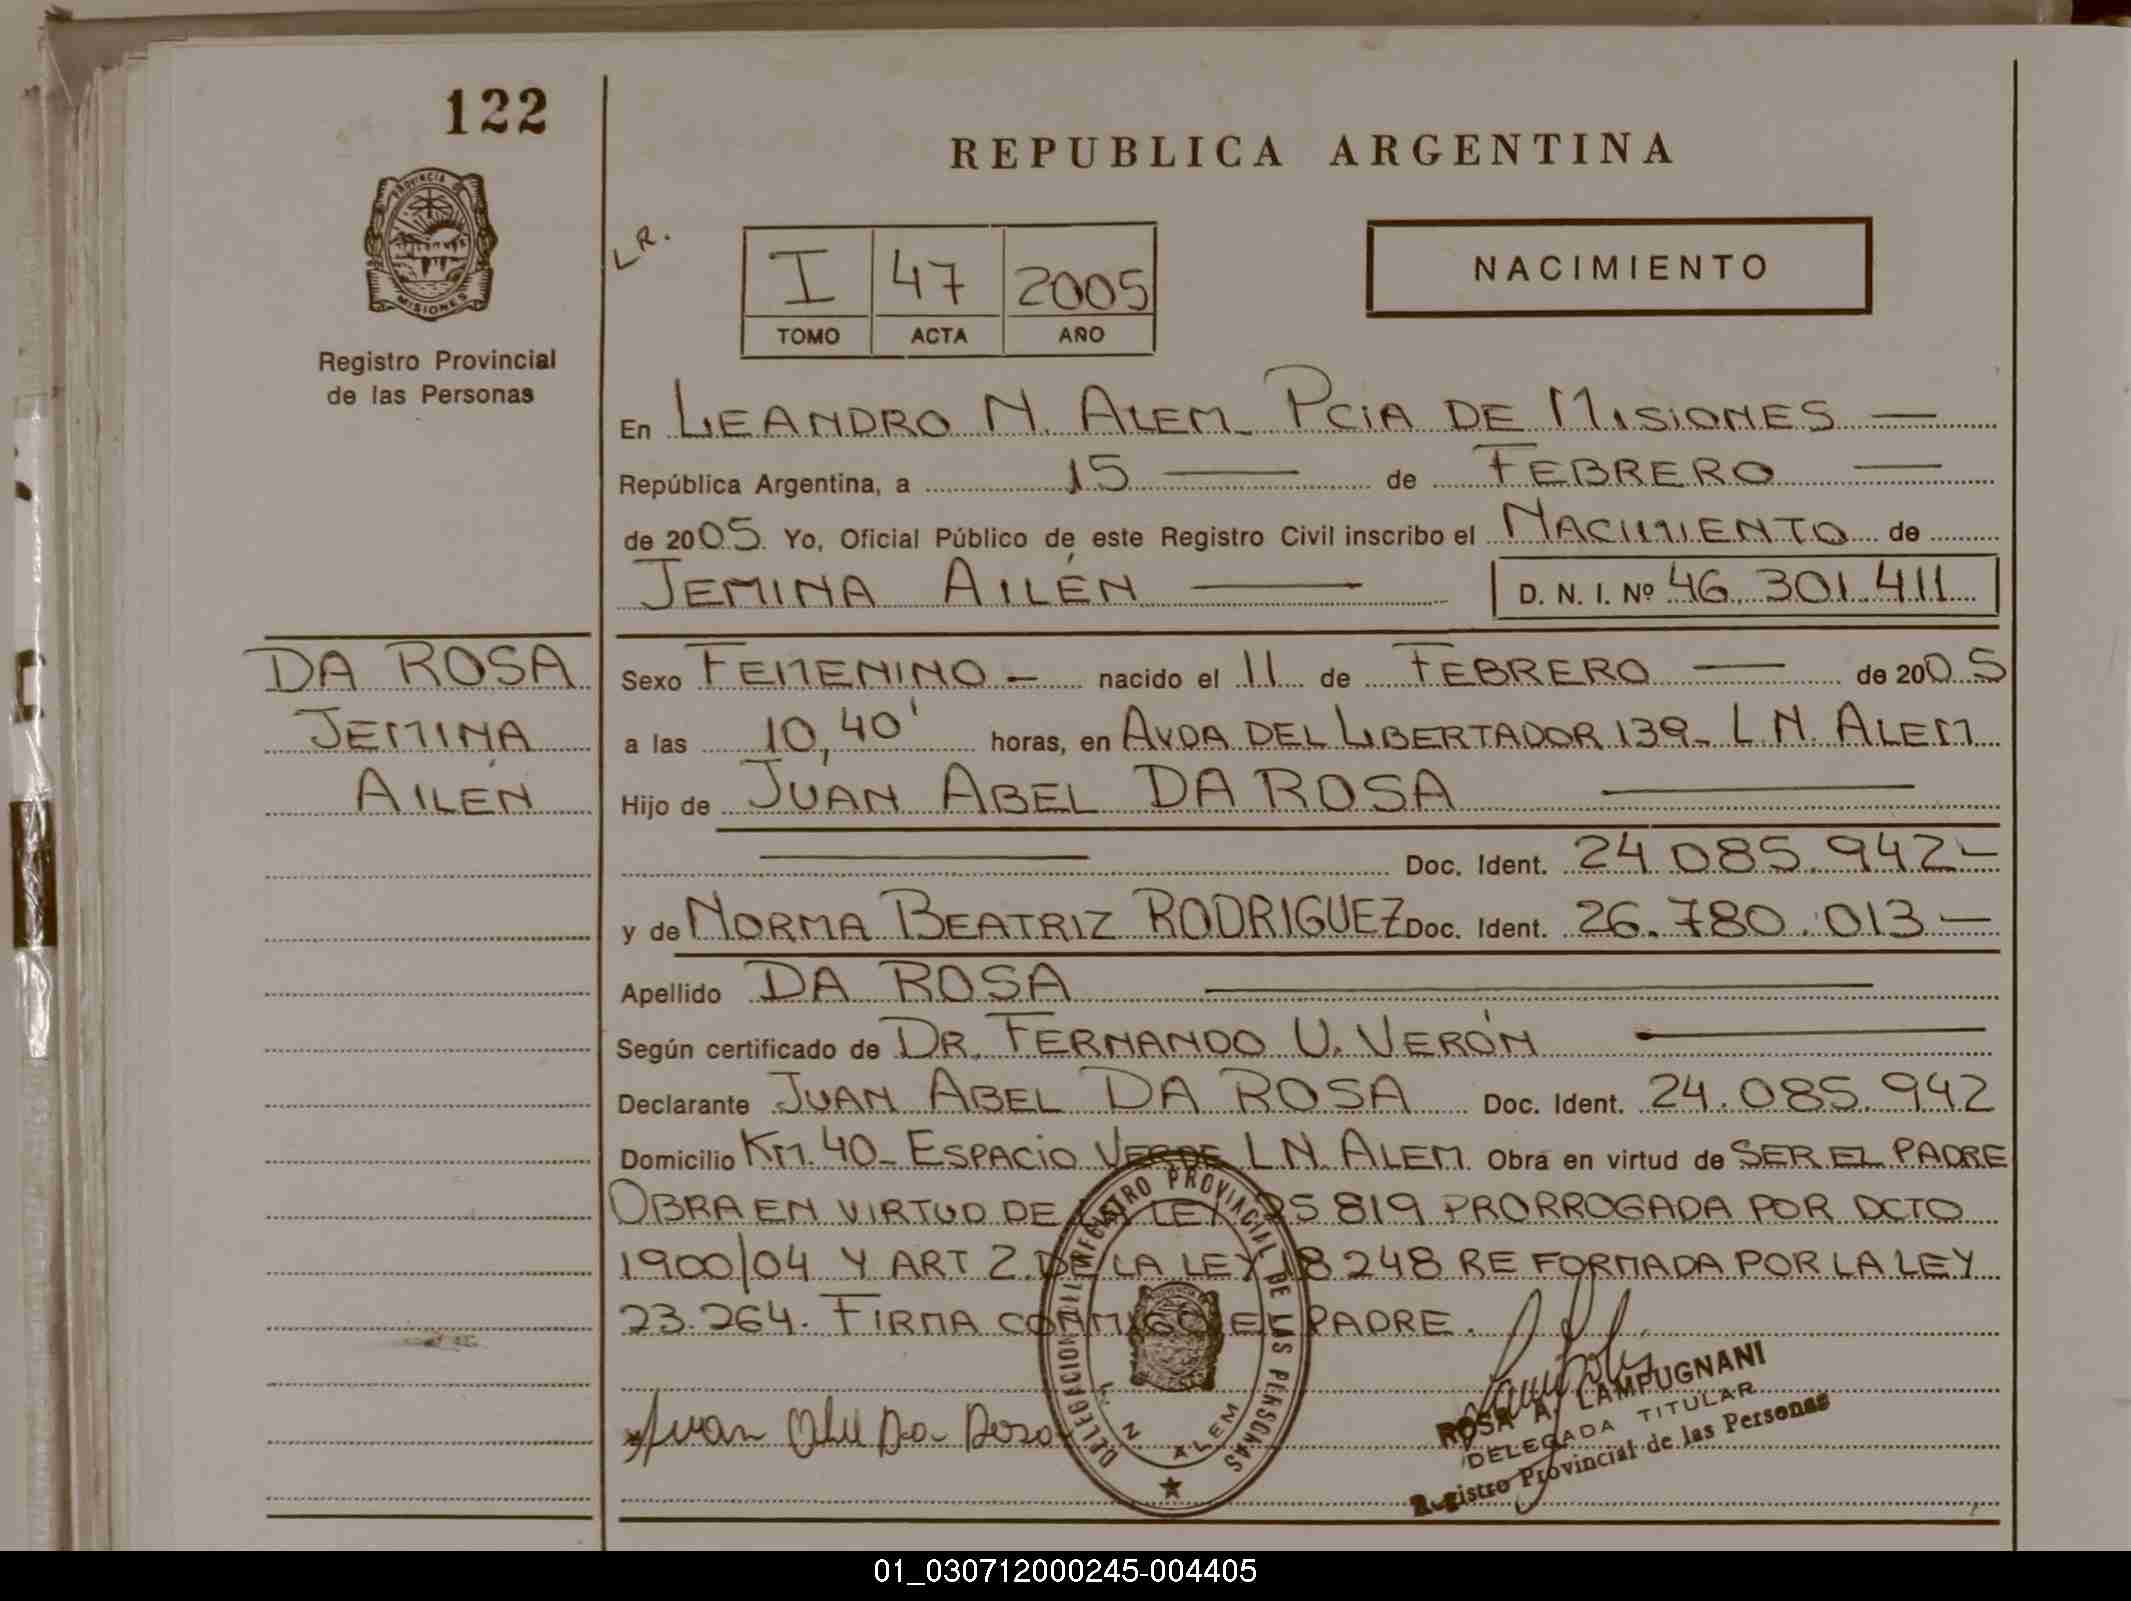 122
REPUBLICA ARGENTINA
PROVINCIA DE
MISIONES
Registro Provincial
de las Personas
L.R.
I 47 2005
TOMO ACTA AÑO
NACIMIENTO
En LEANDRO N. ALEM_ PCIA DE MISIONES —
República Argentina, a 15 — de FEBRERO —
de 2005. Yo, Oficial Público de este Registro Civil inscribo el NACIMIENTO de
JEMINA AILÉN — D. N. I. Nº 46.301.411
DA ROSA
JEMINA
AILÉN
Sexo FEMENINO – nacido el 11 de FEBRERO — de 2005
a las 10,40' horas, en AVDA DEL LIBERTADOR 139_ L.N. ALEM
Hijo de JUAN ABEL DA ROSA —
— Doc. Ident. 24.085.942–
y de NORMA BEATRIZ RODRIGUEZ Doc. Ident. 26.780.013–
Apellido DA ROSA —
Según certificado de DR. FERNANDO U. VERÓN —
Declarante JUAN ABEL DA ROSA Doc. Ident. 24.085.942
Domicilio KM.40_ ESPACIO VERDE L.N. ALEM. Obra en virtud de SER EL PADRE
OBRA EN VIRTUD DE LA LEY 25819 PRORROGADA POR DCTO
1900/04 Y ART 2. DE LA LEY 18248 REFORMADA POR LA LEY
23.264. FIRMA CONMIGO EL PADRE.
DELEGACION REGISTRO PROVINCIAL DE LAS PERSONAS
L. N. ALEM
Juan Abel Da Rosa
ROSA A. LAMPUGNANI
DELEGADA TITULAR
Registro Provincial de las Personas
01_030712000245-004405